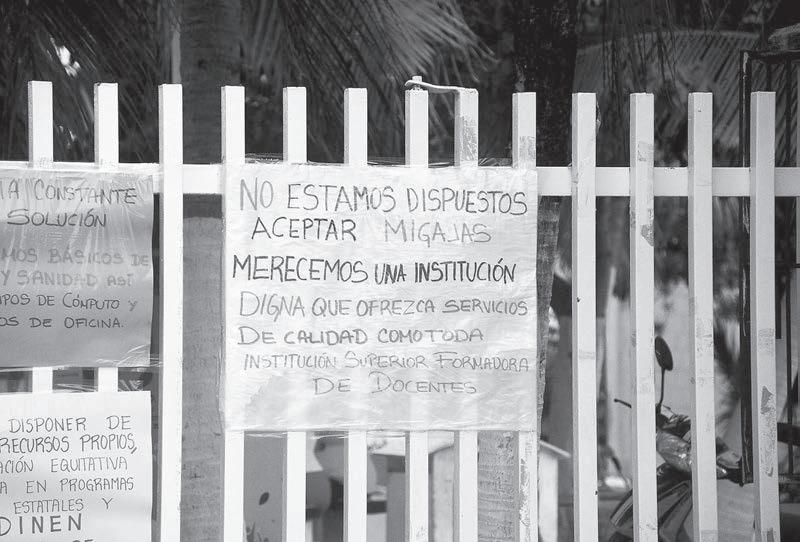 IA CONSTANTE
SOLUCIÓN
MOS BÁSICOS DE
Y SANIDAD ASÍ
IPOS DE CÓMPUTO Y
OS DE OFICINA.
NO ESTAMOS DISPUESTOS
ACEPTAR MIGAJAS
MERECEMOS UNA INSTITUCIÓN
DIGNA QUE OFREZCA SERVICIOS
DE CALIDAD COMO TODA
INSTITUCIÓN SUPERIOR FORMADORA
DE DOCENTES
DISPONER DE
RECURSOS PROPIOS,
ACIÓN EQUITATIVA
A EN PROGRAMAS
ESTATALES Y
DINEN